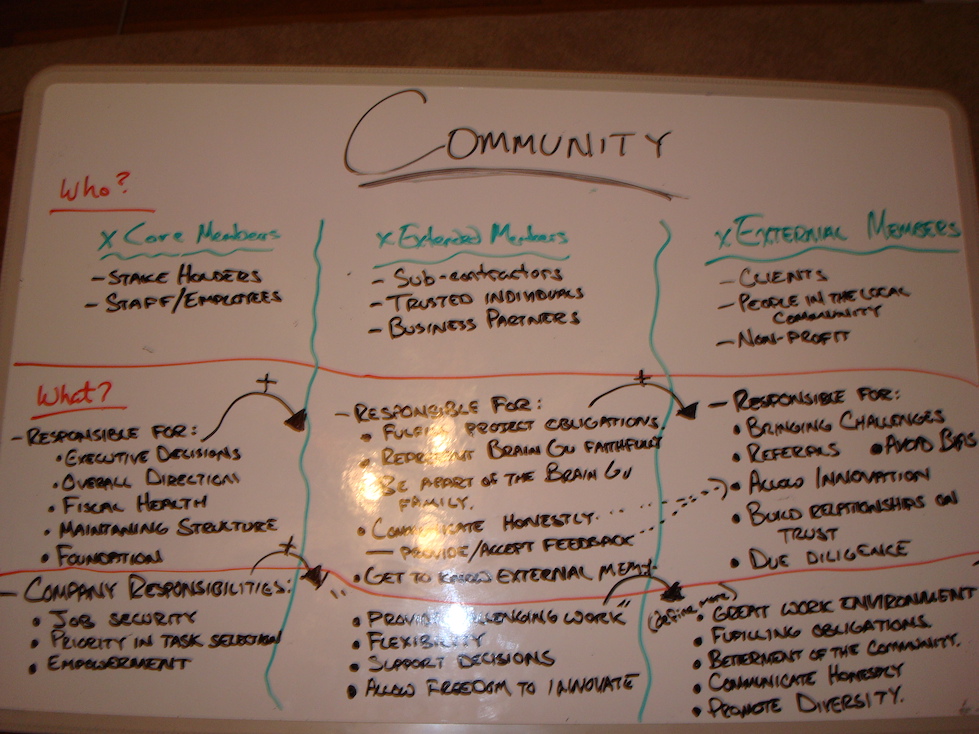 COMMUNITY
Who?
x Core Members
- STAKE HOLDERS
- STAFF/EMPLOYEES
x Extended Members
- Sub-contractors
- TRUSTED INDIVIDUALS
- BUSINESS PARTNERS
x EXTERNAL MEMBERS
- CLIENTS
- PEOPLE IN THE LOCAL
COMMUNITY
- NON-PROFIT
What?
+
- RESPONSIBLE FOR:
• EXECUTIVE DECISIONS
• OVERALL DIRECTION
• FISCAL HEALTH
• MAINTANING STRUCTURE
• FOUNDATION
+
- RESPONSIBLE FOR:
• FULFILL PROJECT OBLIGATIONS.
• REPRESENT BRAIN GU FAITHFULLY
BE APART OF THE BRAIN GU
FAMILY.
• COMMUNICATE HONESTLY
- PROVIDE/ACCEPT FEEDBACK
• GET TO KNOW EXTERNAL
- RESPONSIBLE FOR:
• BRINGING CHALLENGES
• REFERALS • AVOID BIAS
• ALLOW INNOVATION
• BUILD RELATIONSHIPS ON
TRUST
• DUE DILIGENCE
+
- COMPANY RESPONSIBILITIES:
• JOB SECURITY
• PRIORITY IN TASK SELECTION
• EMPOWERMENT
"
• PROVIDE CHALLENGING WORK
• FLEXIBILITY
• SUPPORT DECISIONS
• ALLOW FREEDOM TO INNOVATE
"
(define more)
• GREAT WORK ENVIRONMENT
• FUFILLING OBLIGATIONS.
• BETTERMENT OF THE COMMUNITY.
• COMMUNICATE HONESTLY
• PROMOTE DIVERSITY.